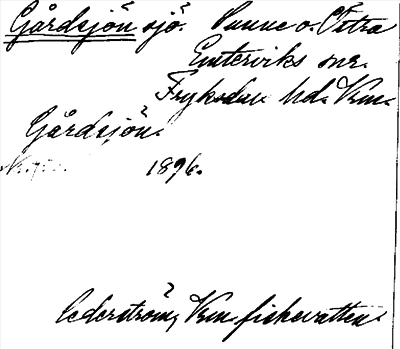 Gårdsjön sjö. Sunne o. Östra
Emterviks snr.
Fryksdals hd. Vrm.
Gårdsjön.
1896.
Cederström, Vrm fiskevatten.